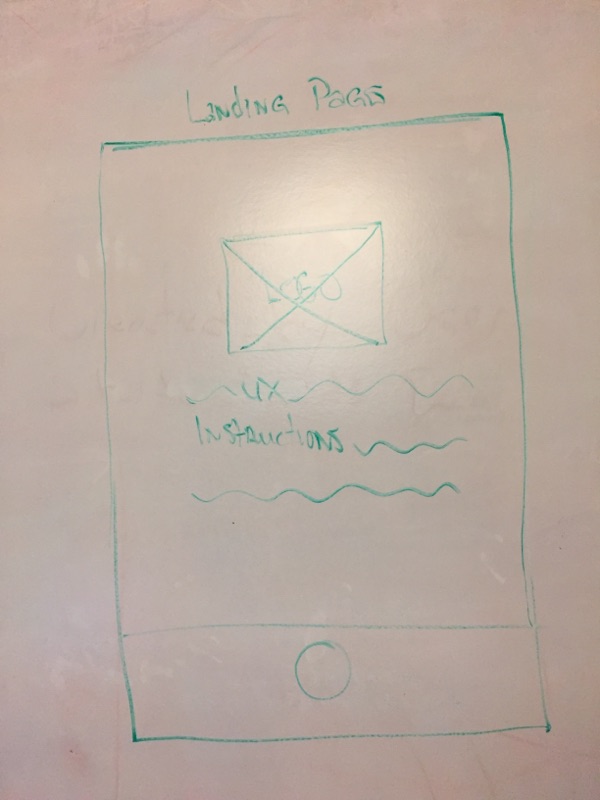 Landing Pages
LOGO
UX
Instructions